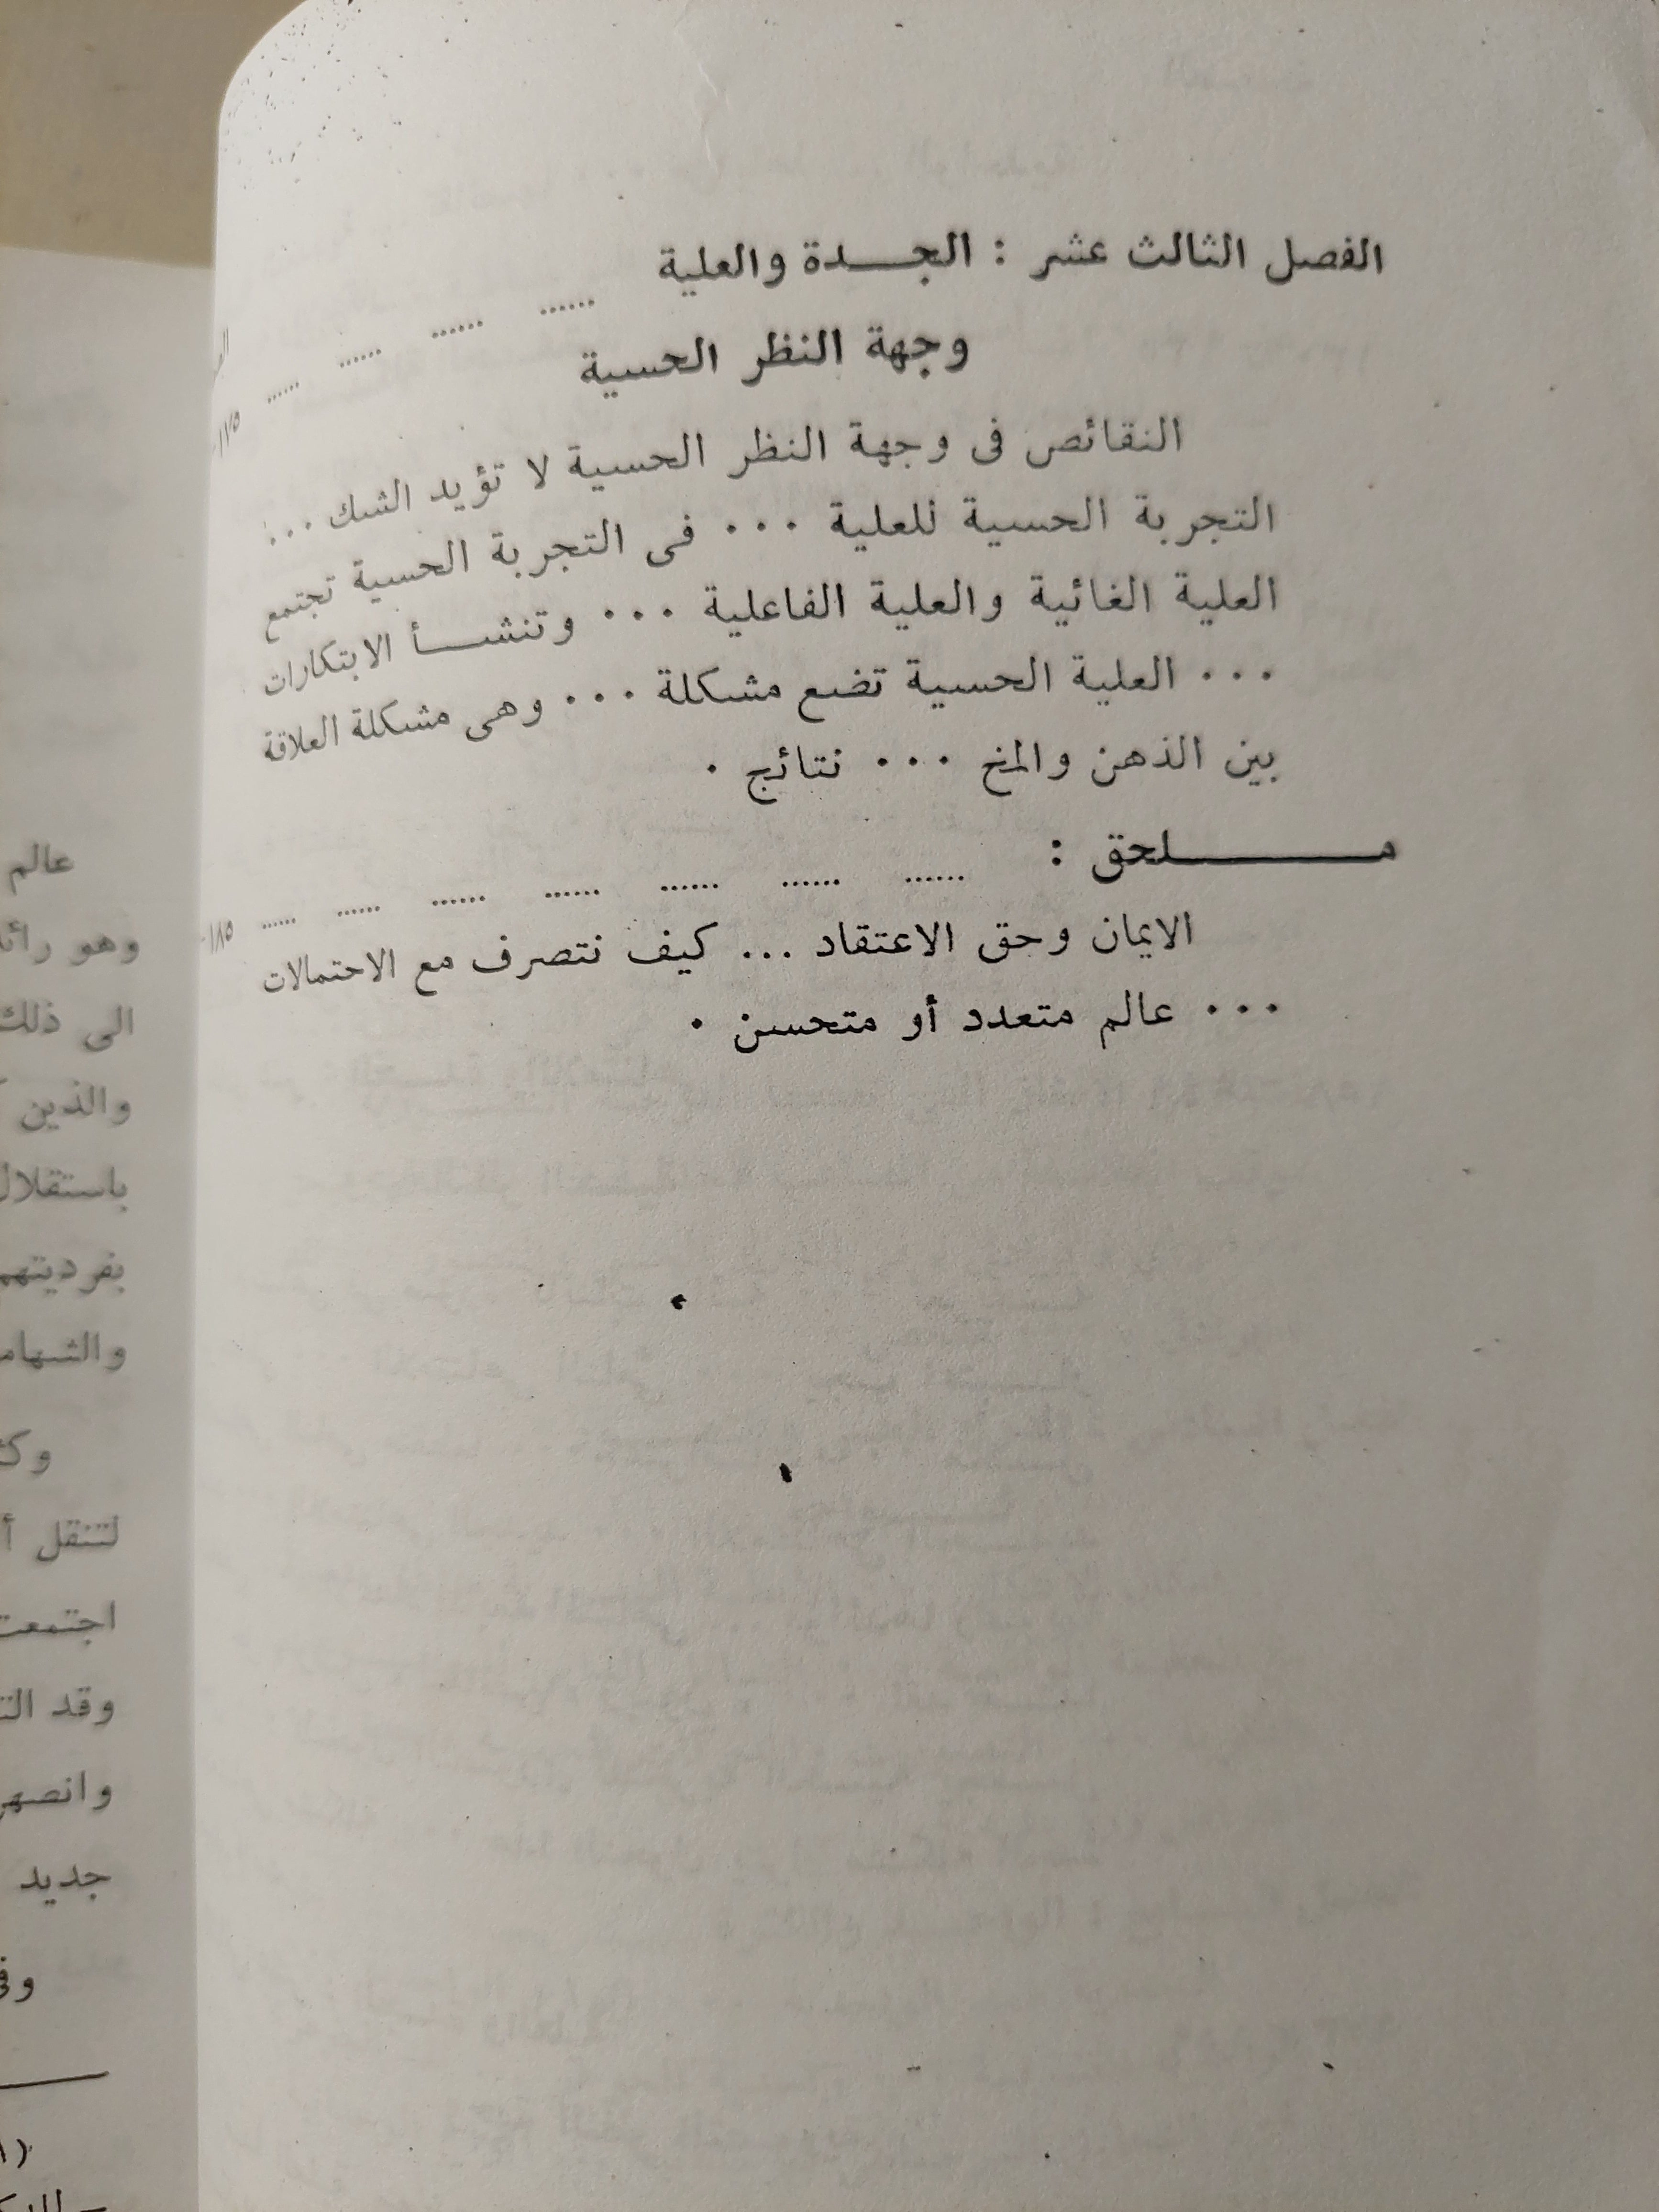 الفصل الثالث عشر : الجـــدة والعلية ...... ...... ...... ......
وجهة النظر الحسية
النقائص فى وجهة النظر الحسية لا تؤيد الشك ...
التجربة الحسية للعلية ... فى التجربة الحسية تجتمع
العلية الغائية والعلية الفاعلية ... وتنشـــأ الابتكارات
... العلية الحسية تضع مشكلة ... وهى مشكلة العلاقة
بين الذهن والمخ ... نتائج .
مـــــــــلحق : ...... ...... ...... ...... ...... ...... ...... ١٨٥-
الايمان وحق الاعتقاد ... كيف نتصرف مع الاحتمالات
... عالم متعدد أو متحسن .
عالم
وهو
الى ذلك
والذين
باستقلال
بفرديتهم
لتنقل
اجتمعت
وقد
جديد